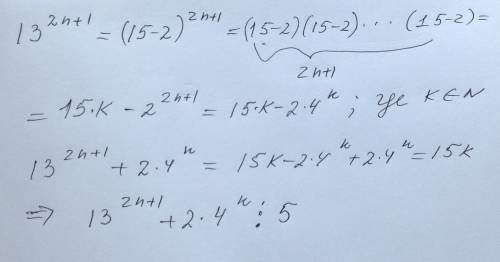 13^{2n+1} = (15-2)^{2n+1} = (15-2)(15-2)···(15-2)=
2n+1
= 15·K - 2^{2n+1} = 15·K - 2·4^n; где K∈N
13^{2n+1} + 2·4^n = 15K - 2·4^n + 2·4^n = 15K
⇒ 13^{2n+1} + 2·4^n ⋮ 5